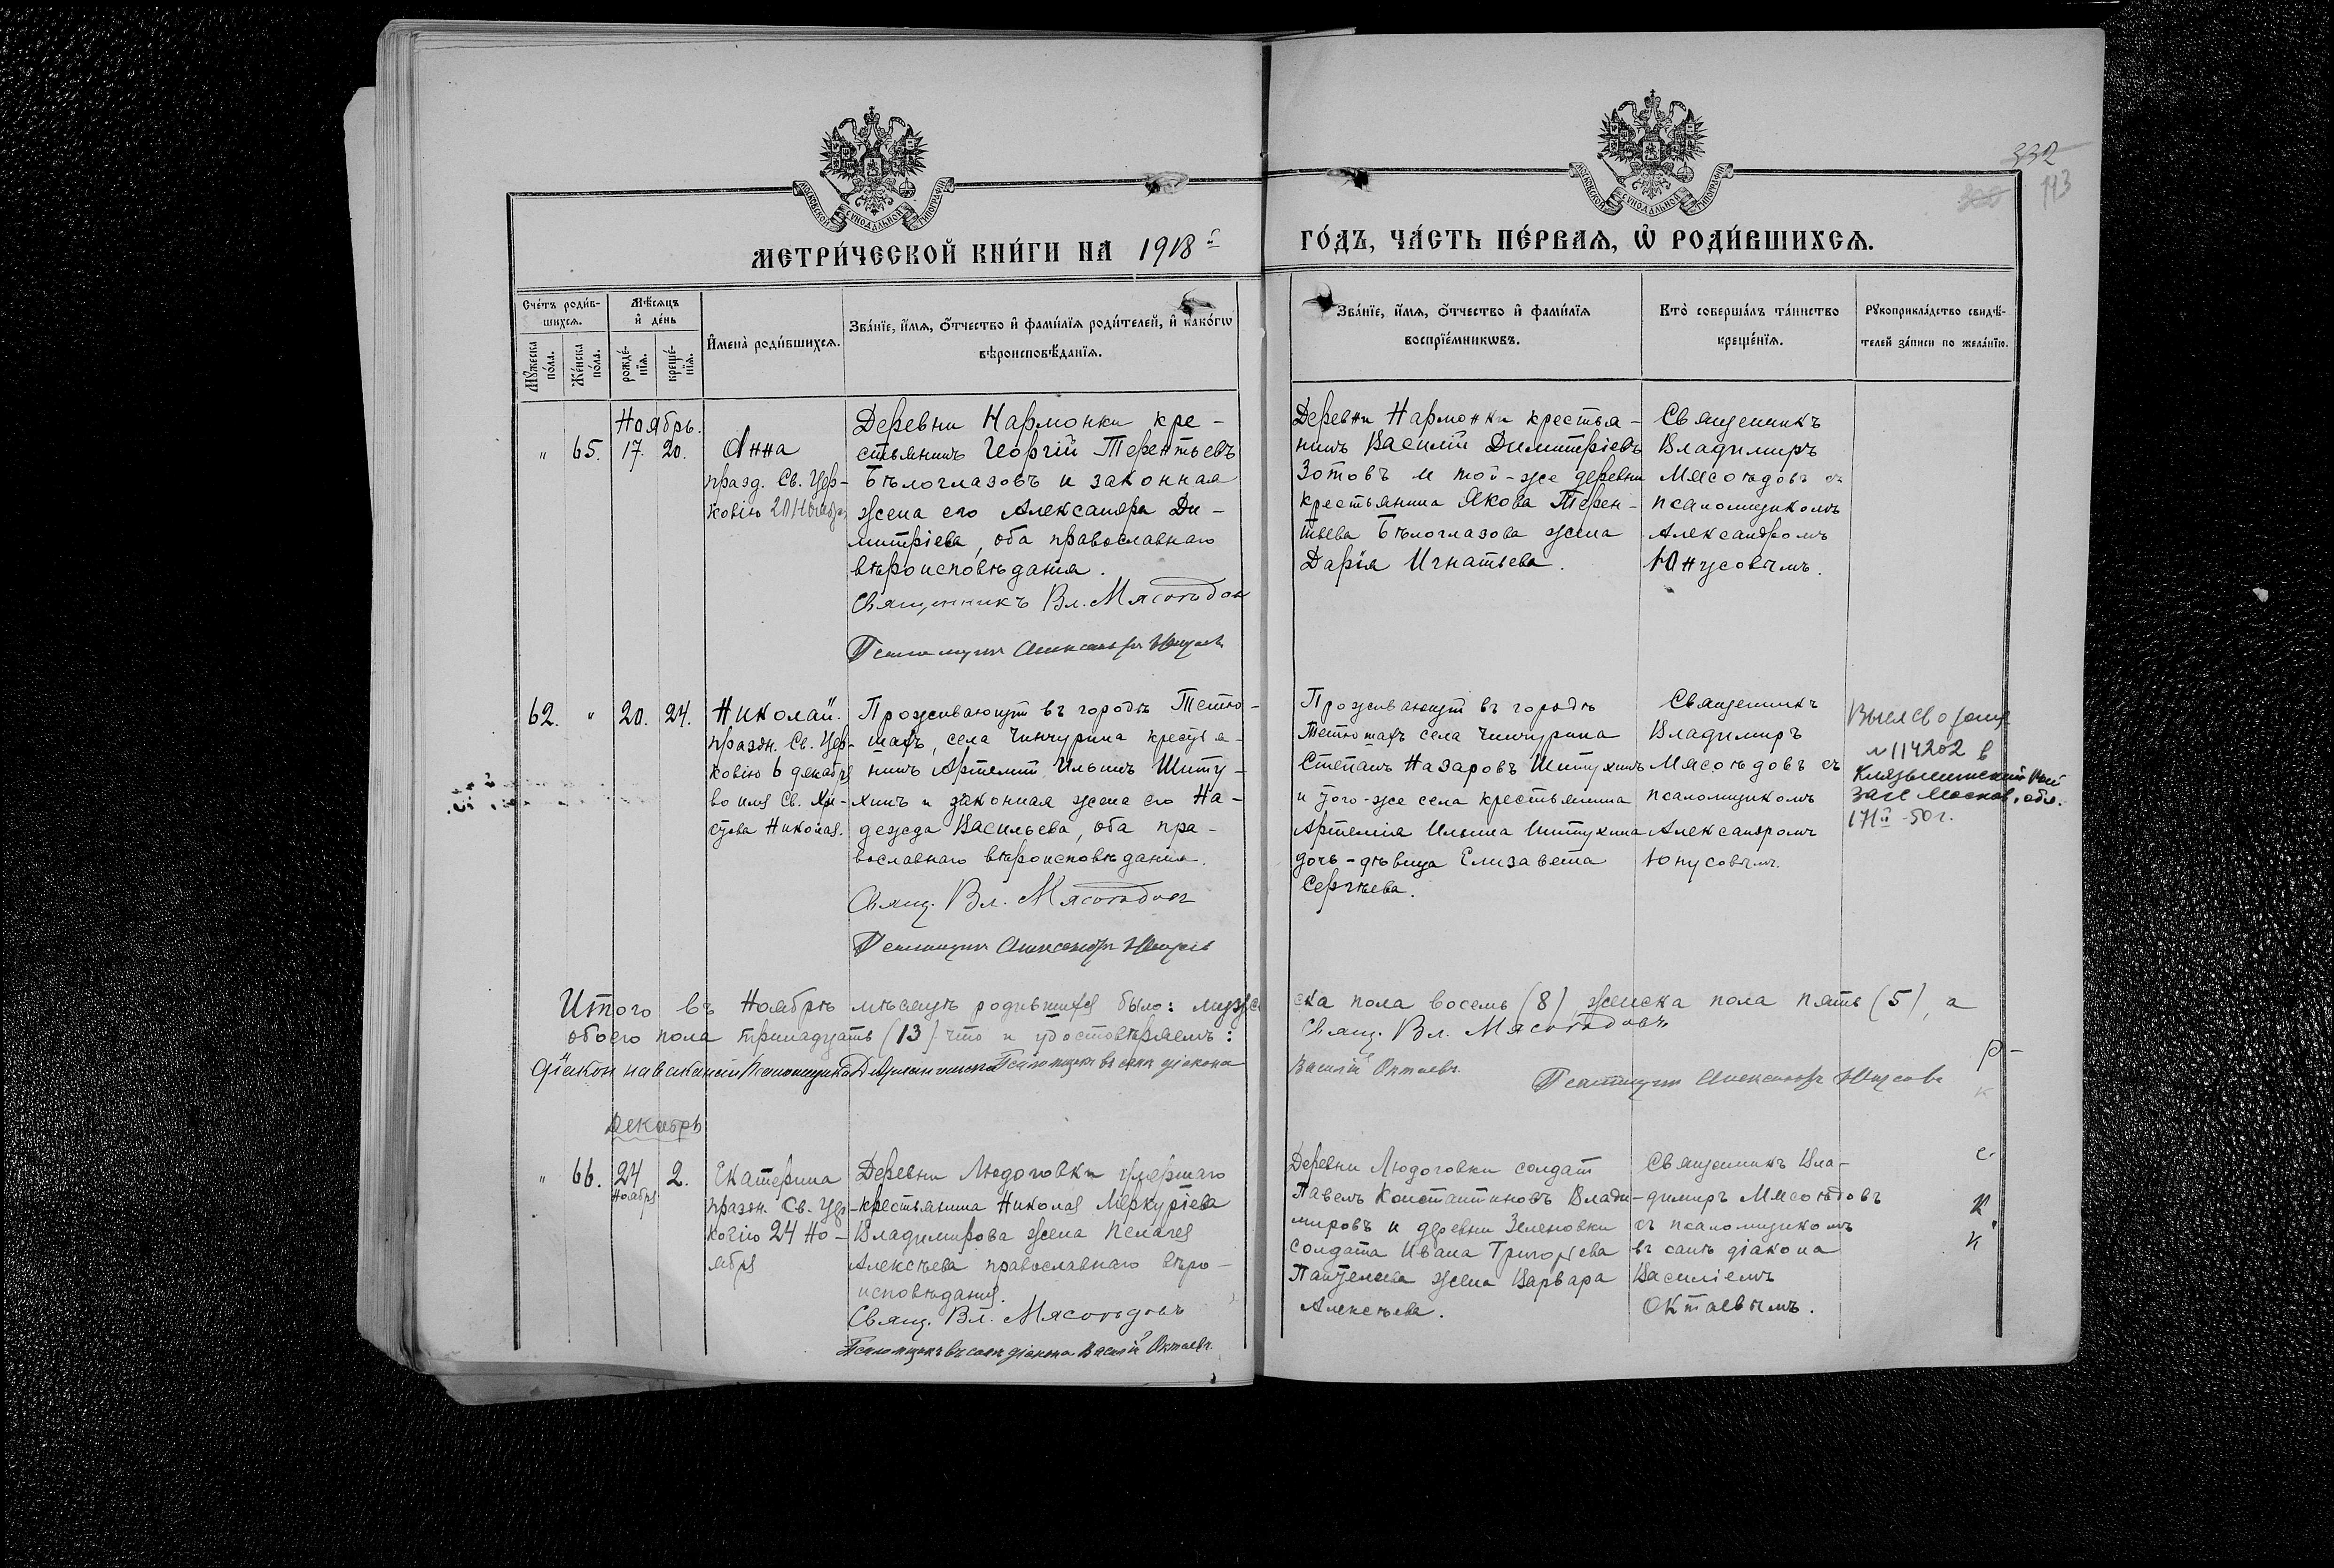 МОСКОВСКОЙ СѴНОДАЛЬНОЙ ТИПОГРАФІИ
МОСКОВСКОЙ СѴНОДАЛЬНОЙ ТИПОГРАФІИ
332
113
МЕТРИ́ЧЕСКОЙ КНИ́ГИ НА 1918й
ГО́ДЪ, ЧА́СТЬ ПЕ́РВАЯ, Ѡ҆ РОДИ́ВШИХСЯ.
Сче́тъ роди́в-
шихся.
Мꙋжеска по́ла.
Же́нска по́ла.
Мѣ́сяцъ
и҆ де́нь
рожде́-
нїѧ.
креще́-
нїѧ.
И҆мена̀ роди́вшихся.
Зва́нїе, и҆́мѧ, ѻ҆́тчество и҆ фами́лїѧ роди́телей, и҆ како́гѡ
вѣроисповѣ́данїѧ.
Зва́нїе, и҆́мѧ, ѻ҆́тчество и҆ фами́лїѧ
воспрїе́мникѡвъ.
Кто̀ соверша́лъ та́инство
креще́нїѧ.
Рꙋкоприкла́дство свидѣ́-
телей за́писи по жела́нїю.
Ноябрь.
" 65. 17. 20.
Анна
празд. Св. Цер-
ковію 20 Ноября
Деревни Нармонки кре-
стьянинъ Георгій Терентьевъ
Бѣлоглазовъ и законная
жена его Александра Ди-
митріева, оба православнаго
вѣроисповѣданія.
Священникъ Вл. Мясоѣдовъ
Псаломщикъ Александръ Юнусовъ
Деревни Нармонки крестья-
нинъ Василій Димитріевъ
Зотовъ и той-же деревни
крестьянина Якова Терен-
тьева Бѣлоглазова жена
Дарія Игнатьева.
Священникъ
Владимиръ
Мясоѣдовъ съ
псаломщикомъ
Александромъ
Юнусовымъ.
62. " 20. 24.
Николай.
праздн. Св. Цер-
ковію 6 декабря
во имя Св. Хри-
стова Николая.
Проживающій въ городѣ Тетю-
шахъ, села Чинчурина крестья-
нинъ Артемій Ильинъ Шиту-
хинъ и законная жена его На-
дежда Васильева, оба пра-
вославнаго вѣроисповѣданія.
Свящ. Вл. Мясоѣдовъ
Псаломщикъ Александръ Юнусовъ
Проживающій въ городѣ
Тетюшахъ села Чинчурина
Степанъ Назаровъ Шитухинъ
и того-же села крестьянина
Артемія Ильина Шитухина
дочь-дѣвица Елизавета
Сергѣева.
Священникъ
Владимиръ
Мясоѣдовъ съ
псаломщикомъ
Александромъ
Юнусовымъ.
№ 114202 в
Клязьминский
ЗАГС Москов. обл.
50 г.
Итого въ Ноябрѣ мѣсяцѣ родившихся было: мужеска пола восемь (8) женска пола пять (5), а
обоего пола тринадцать (13) что и удостовѣряемъ: Свящ. Вл. Мясоѣдовъ
Псаломщикъ въ санѣ діакона Василій Октаевъ
Псаломщикъ Александръ Юнусовъ
Декабрь
" 66. 24 2.
Ноября
Екатерина
праздн. Св. Цер-
ковію 24 Но-
ября
Деревни Людоговки умершаго
крестьянина Николая Меркуріева
Владимирова жена Пелагея
Алексѣева православнаго вѣро-
исповѣданія.
Свящ. Вл. Мясоѣдовъ
Псаломщикъ въ санѣ діакона Василій Октаевъ.
Деревни Людоговки солдат
Павелъ Константиновъ Влади-
мировъ и деревни Зеленовки
солдата Ивана Григорьева
Пантелеева жена Варвара
Алексѣева.
Священникъ Вла-
димиръ Мясоѣдовъ
съ псаломщикомъ
въ санѣ діакона
Василіемъ
Октаевымъ.